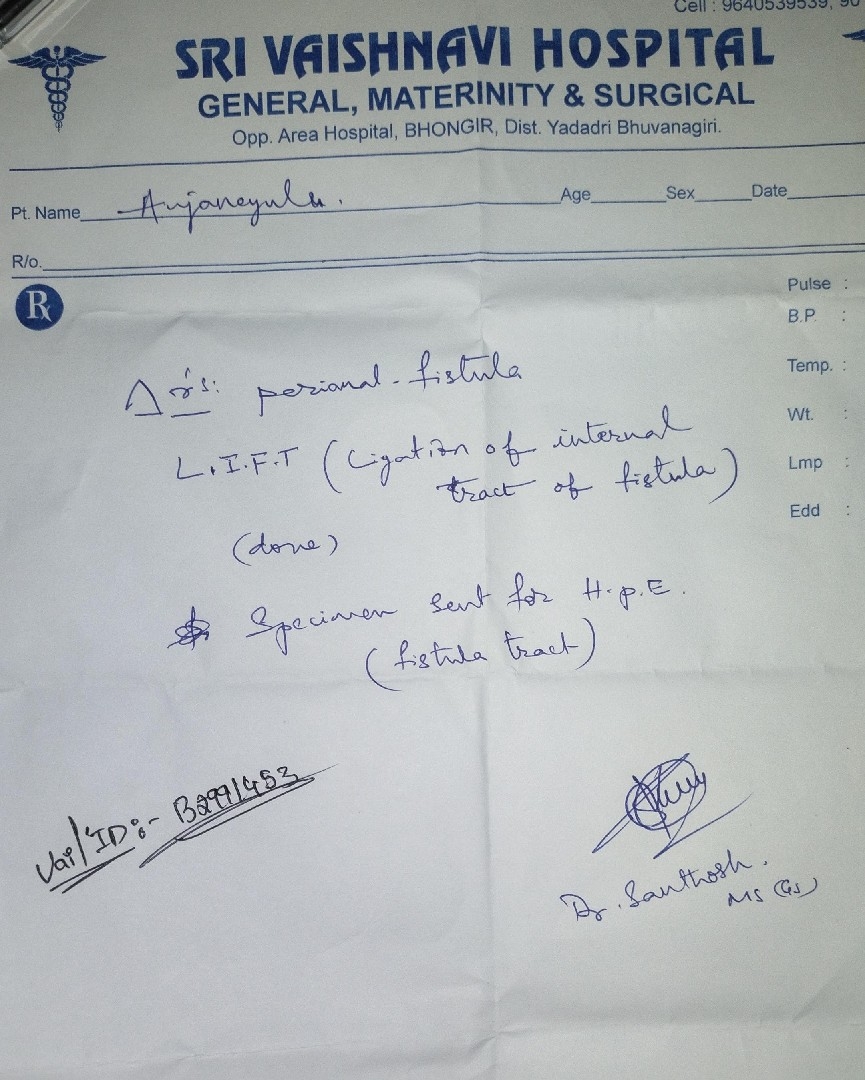 Cell : 9640539539, 90
SRI VAISHNAVI HOSPITAL
GENERAL, MATERINITY & SURGICAL
Opp. Area Hospital, BHONGIR, Dist. Yadadri Bhuvanagiri.
Pt. Name Anjaneyulu. Age Sex Date
R/o.
Rx
Pulse :
B.P. :
Temp. :
Wt. :
Lmp :
Edd :
Δ sis: perianal - fistula
L.I.F.T (Ligation of internal
tract of fistula)
(done)
Specimen sent for H.P.E.
(fistula tract)
Vai/ID:- B2991453
Dr. Santhosh.
MS (GS)